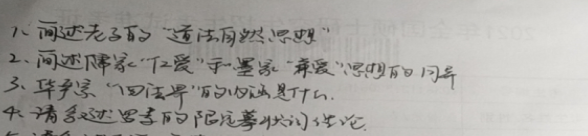 1、简述老子的“道法自然思想”
2、简述儒家“仁爱”和墨家“兼爱”思想的同异
3、华严宗“四法界”的内涵是什么.
4、请多述罗素的限定摹状词理论.